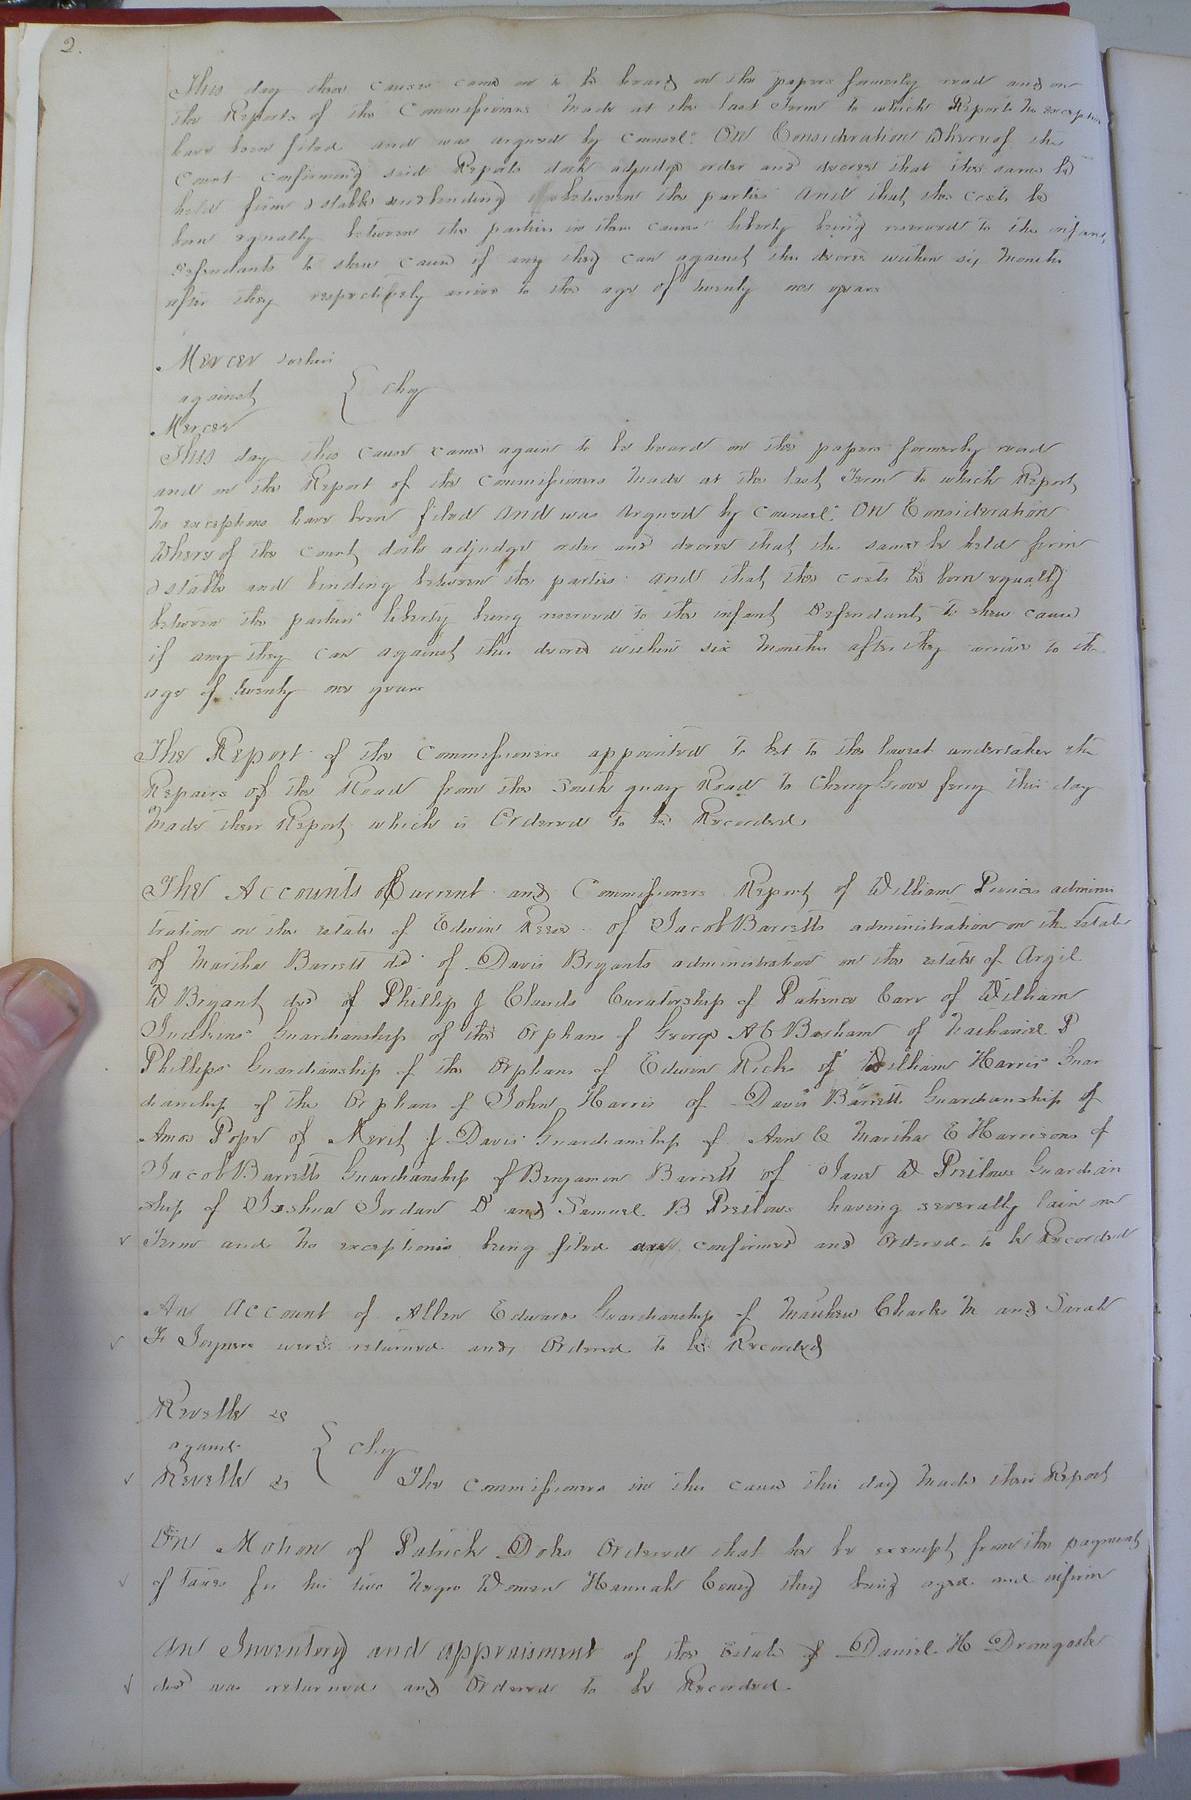 2.
This day this cause came on to be heard on the papers formerly read and on
the Reports of the Commissioners made at the last Term to which Reports no exceptions
have been filed and was argued by Counsel: On Consideration whereof the
Court confirming said Reports doth adjudge order and decree that the same be
held firm & stable and binding between the parties and that the costs be
born equally between the parties in this cause liberty being reserved to the infant
Defendants to shew cause if any they can against this decree within six Months
after they respectively arrive to the age of twenty one years
Mercer
against } Chy
Mercer
This day this cause came again to be heard on the papers formerly read
and on the Report of the Commissioners made at the last Term to which Report
no exceptions have been filed and was argued by Counsel: On Consideration
Whereof the court doth adjudge order and decree that the same be held firm
& stable and binding between the parties: and that the costs be born equally
between the parties liberty being reserved to the infant Defendants to shew cause
if any they can against this decree within six Months after they arrive to the
age of twenty one years
The Report of the Commissioners appointed to let to the lowest undertaker the
Repairs of the Road from the South quay Road to Cherry Grove ferry this day
made their Report which is Ordered to be Recorded
The Accounts Current and Commissioners Report of William adminis
tration on the estate of Edwin Reese of Jacob Barretts administration on the Estate
of Martha Barrett decd of Davis Bryants administration on the estate of Argil
W Bryant decd of Phillip J Clauds Curatorship of Patience Carr of William
Guardianship of the Orphans of George A C Basham of Nathaniel P
Phillips Guardianship of the Orphans of Edwin Ricks of William Harris Guar
dianship of the Orphans of John Harris of Davis Barretts Guardianship of
Amos Pope of Merit J Davis Guardianship of Ann E Martha E Harrisons of
Jacob Barretts Guardianship of Benjamin Barrett of Jane W Preilows Guardian
ship of Joshua Jordan D and Samuel B Preilows having severally lain one
Term and no exceptions being filed are confirmed and Ordered to be Recorded
An Account of Allen Edwards Guardianship of Matthew Charles M and Sarah
F Joyners were returned and Ordered to be Recorded
Revelle &c
against } Chy
Revelle &c The Commissioners in this cause this day made their Report
On Motion of Patrick Doles Ordered that he be exempt from the payment
of Taxes for his two Negro Women Hannah they being aged and infirm
An Inventory and appraisment of the Estate of Daniel H Dromgoole
decd was returned and Ordered to be Recorded.